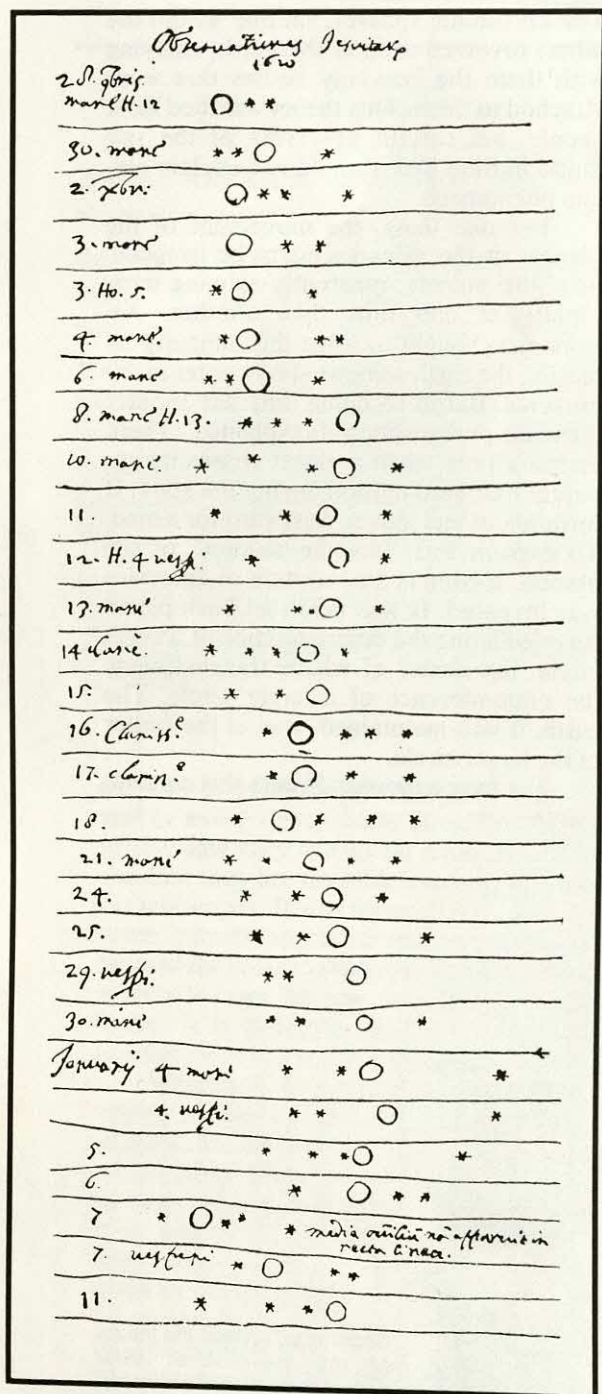 Observationes Jesuitarum
1610
28. 9bris.
mane H. 12
30. mane
2. Xbri:
3. mane
3. Ho. 5.
4. mane
6. mane
8. mane H. 13.
10. mane.
11.
12. H. 4 vesp.
13. mane
14 clare.
15.
16. Clariss.e
17. clariss.e
18.
21. mane
24.
25.
29. vesperi:
30. mane
Januarij 4 mane
4. vesperi:
5.
6
7 media non apparuit in
recta linea.
7. vesperi
11.